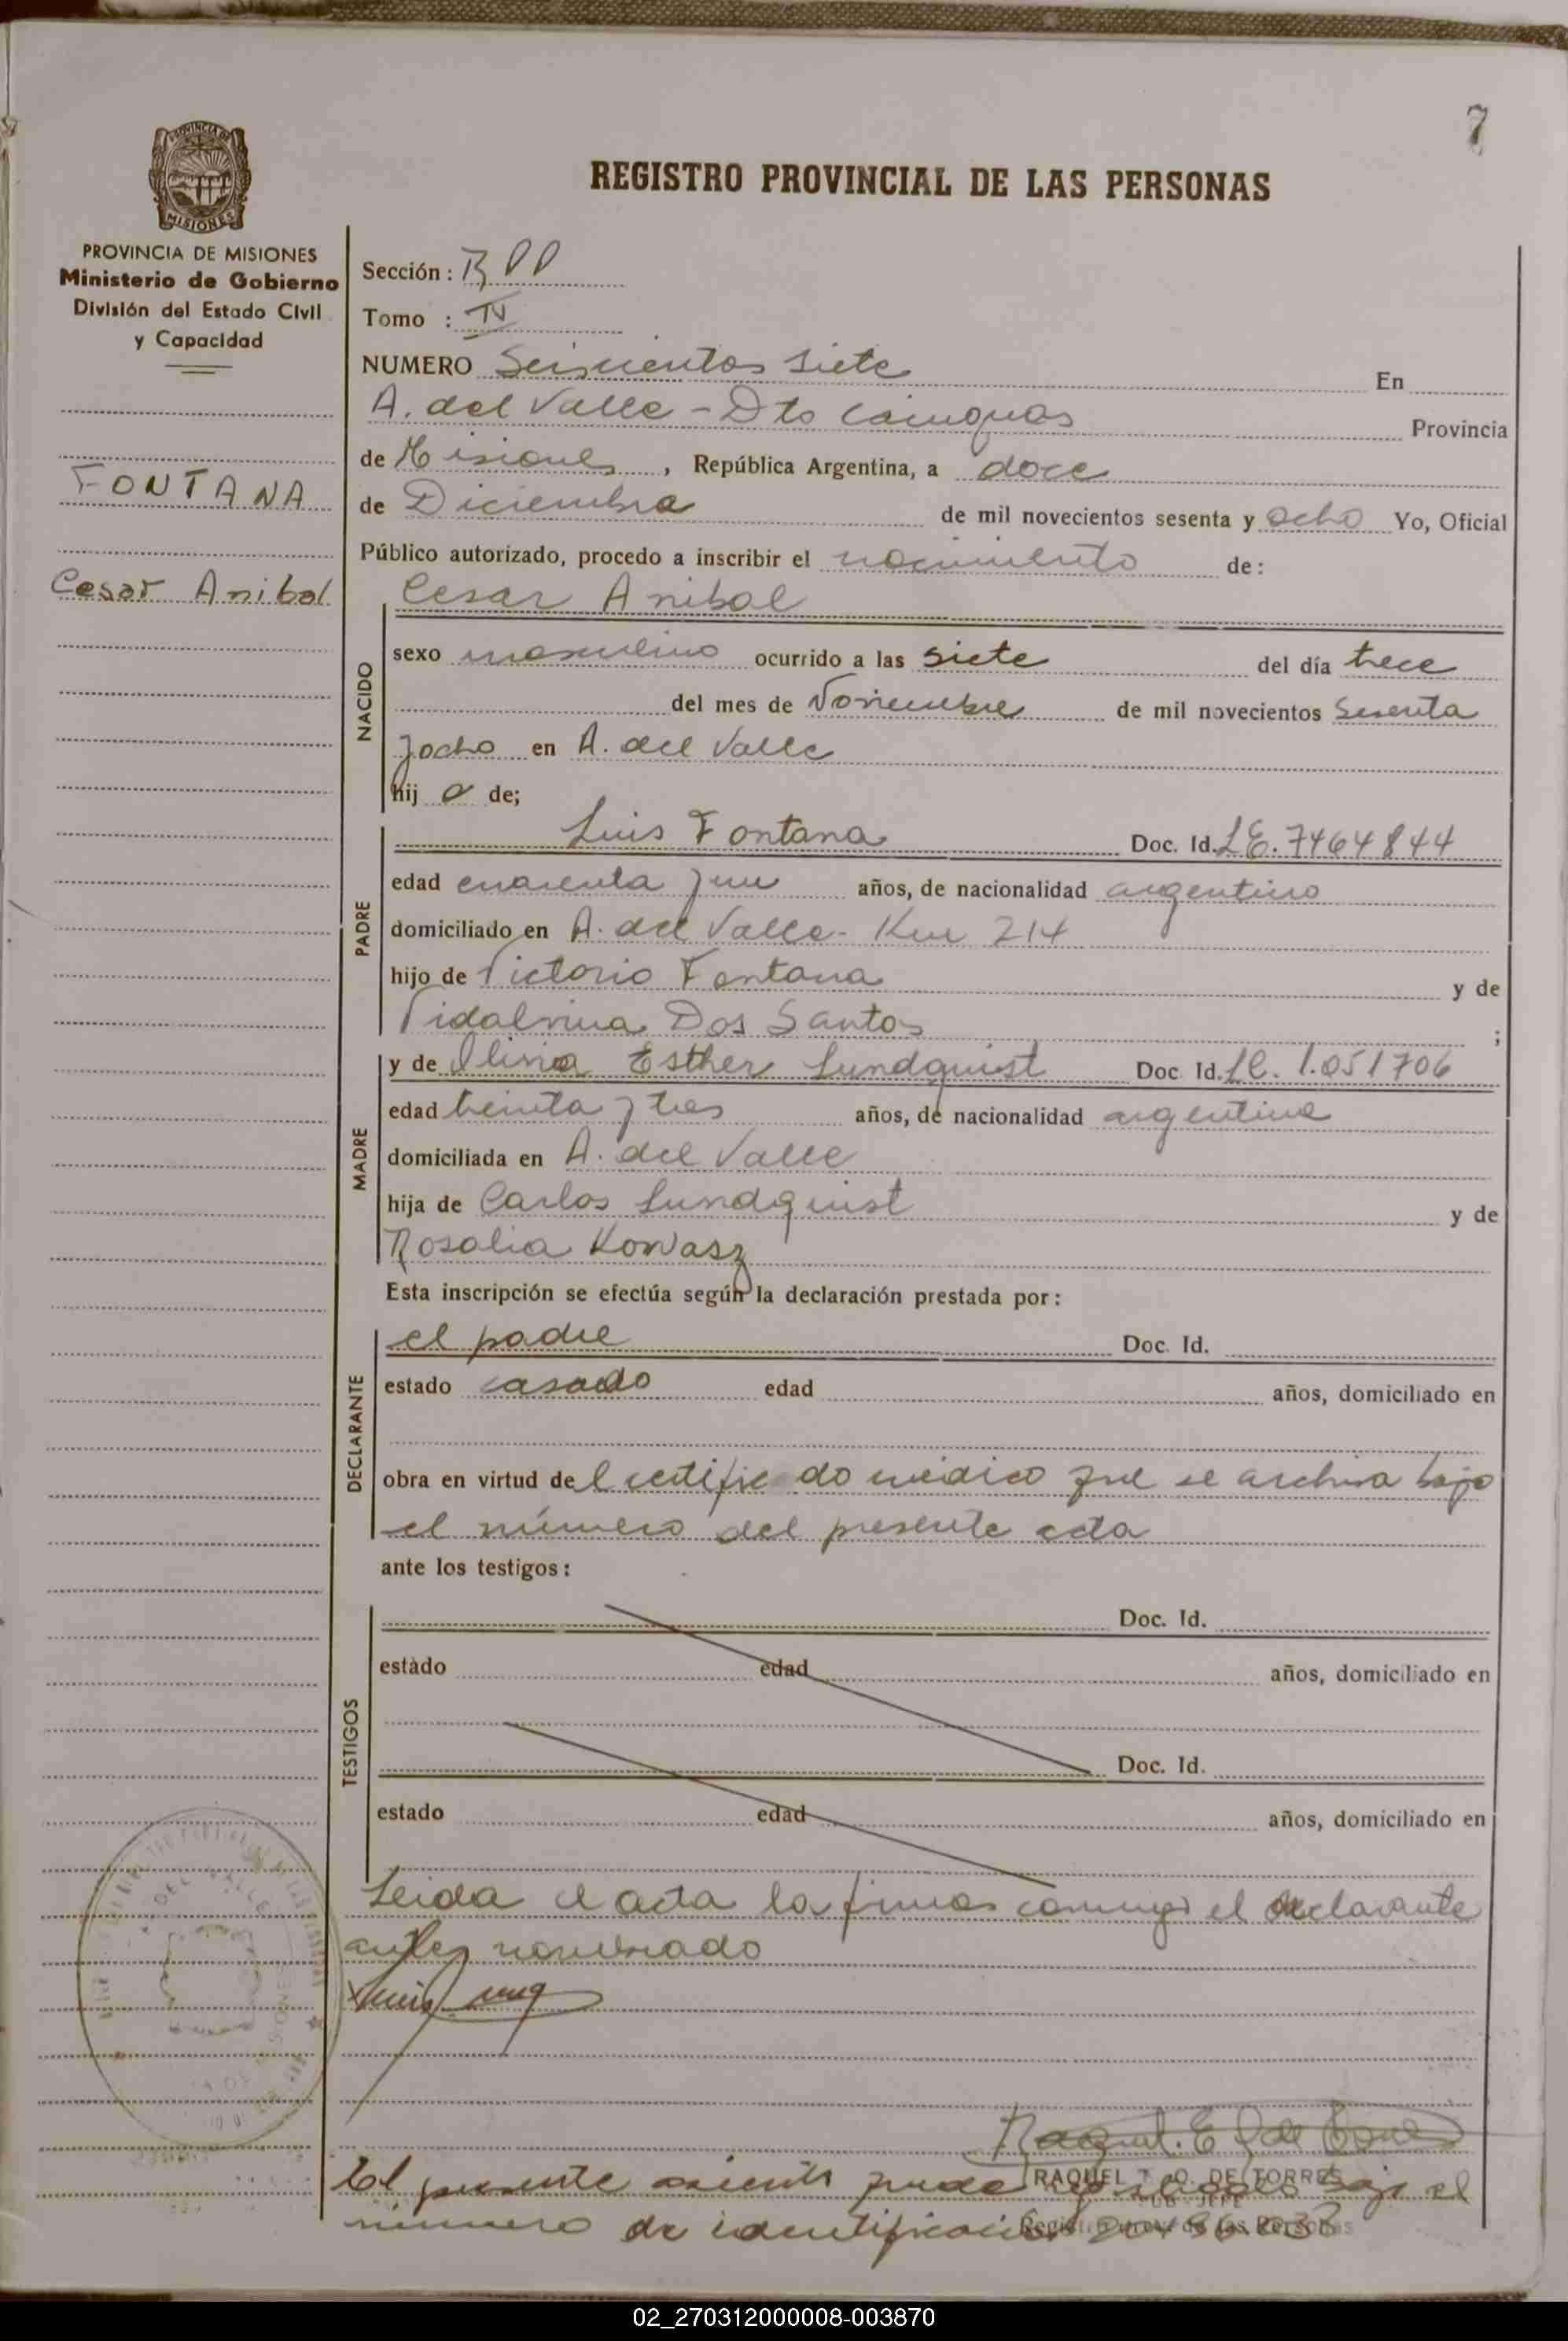 7
REGISTRO PROVINCIAL DE LAS PERSONAS
PROVINCIA DE
MISIONES
PROVINCIA DE MISIONES
Ministerio de Gobierno
División del Estado Civil
y Capacidad
FONTANA
Cesar Anibal
Sección :
Tomo : IV
NUMERO Seiscientos siete En
A. del Valle - Dto Cainguas Provincia
de Misiones, República Argentina, a doce
de Diciembre de mil novecientos sesenta y ocho Yo, Oficial
Público autorizado, procedo a inscribir el nacimiento de:
Cesar Anibal
NACIDO
sexo masculino ocurrido a las siete del día trece
del mes de Noviembre de mil novecientos sesenta
y ocho en A. del Valle
hij o de;
PADRE
Luis Fontana Doc. Id. LE. 7464844
edad cuarenta y un años, de nacionalidad argentino
domiciliado en A. del Valle - Km 214
hijo de Victorio Fontana y de
Vidalvina Dos Santos ;
MADRE
y de Esther Lundquist Doc. Id. LC. 1.051706
edad treinta y tres años, de nacionalidad argentina
domiciliada en A. del Valle
hija de Carlos Lundquist y de
Rosalia Kowasz
Esta inscripción se efectúa según la declaración prestada por:
DECLARANTE
el padre Doc. Id.
estado casado edad años, domiciliado en
obra en virtud del certificado médico que se archiva bajo
el número del presente acta
ante los testigos:
TESTIGOS
Doc. Id.
estado edad años, domiciliado en
Doc. Id.
estado edad años, domiciliado en
Leida el acta la firma conmigo el declarante
antes nombrado
RAQUEL DE TORRES
SUB - JEFE
El presente asiento queda registrado bajo el
número de identificación
02_270312000008-003870